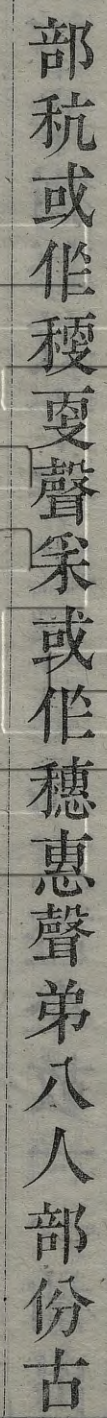 部秔或作稉㪅聲采或作穗惠聲弟八人部份古